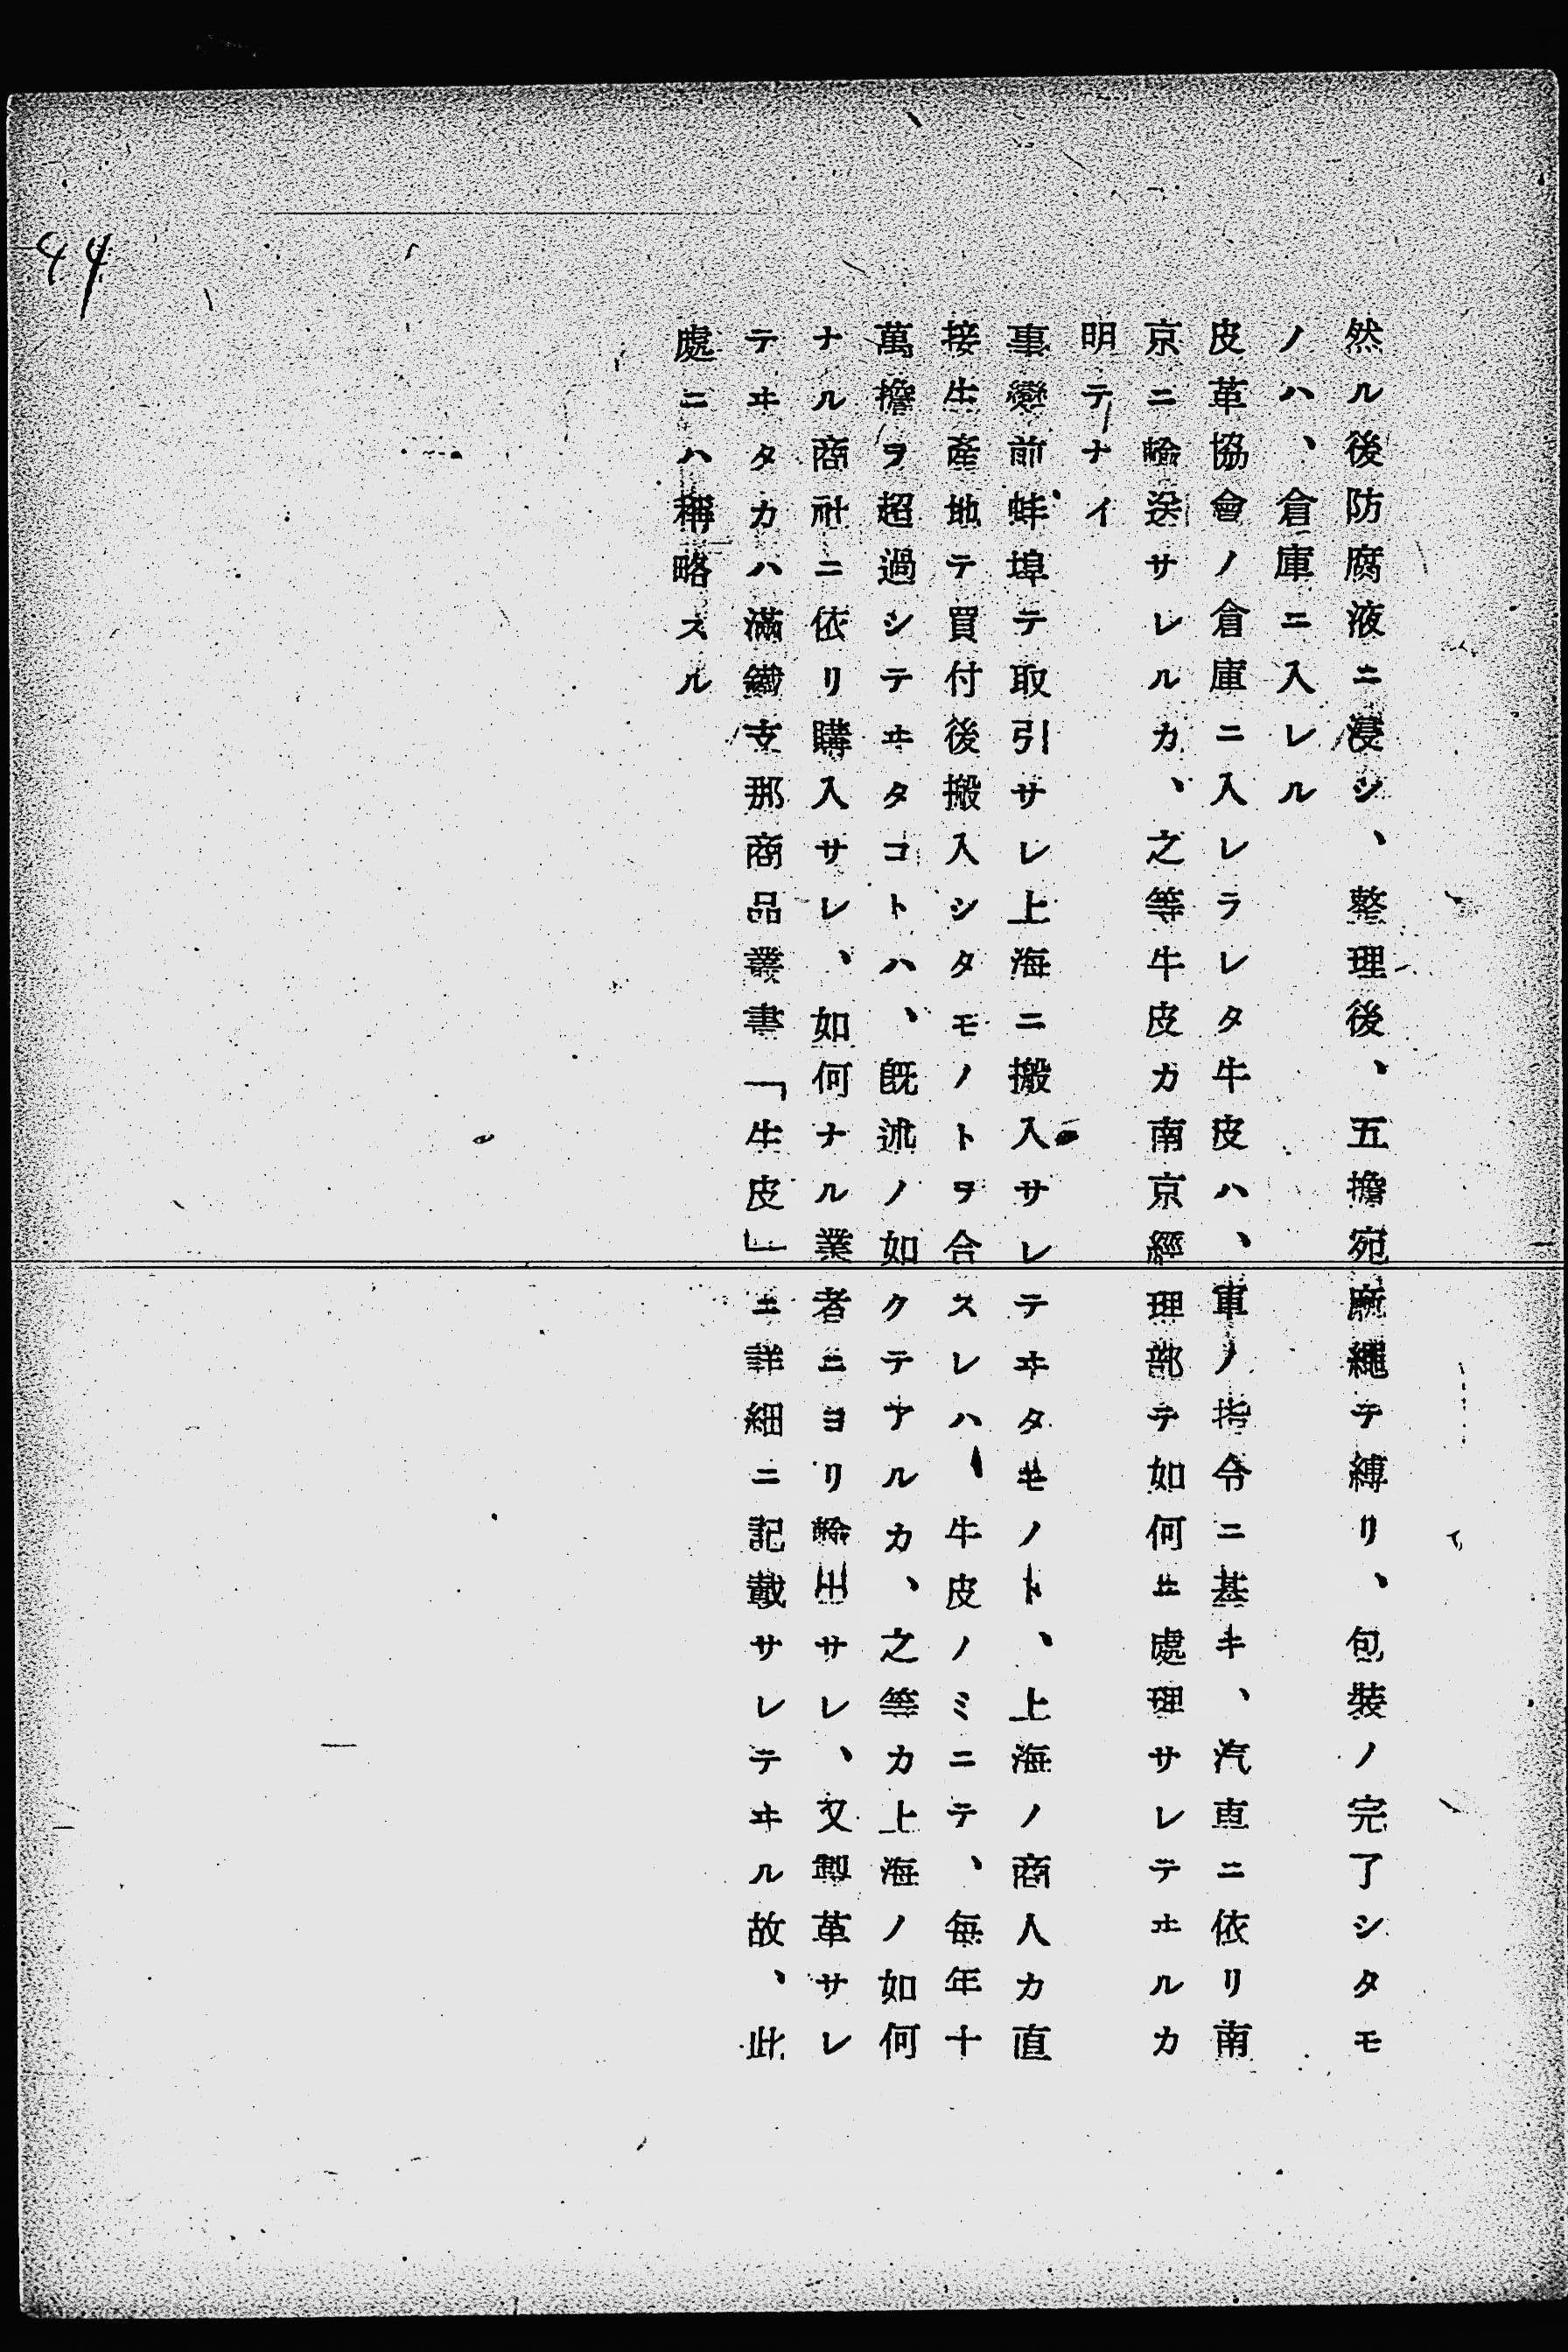 然ル後防腐液ニ浸シ、整理後、五擔宛麻繩テ縛リ、包裝ノ完了シタモ
ノハ、倉庫ニ入レル
皮革協會ノ倉庫ニ入レラレタ牛皮ハ、軍ノ指令ニ基キ、汽車ニ依リ南
京ニ輸送サレルカ、之等牛皮カ南京經理部テ如何ニ處理サレテヰルカ
明テナイ
事變前蚌埠テ取引サレ上海ニ搬入サレテヰタモノト、上海ノ商人カ直
接生產地テ買付後搬入シタモノトヲ合スレハ、牛皮ノミニテ、每年十
萬擔ヲ超過シテヰタコトハ、既述ノ如クテアルカ、之等カ上海ノ如何
ナル商社ニ依リ購入サレ、如何ナル業者ニヨリ輸出サレ、又製革サレ
テヰタカハ滿鐵支那商品叢書「牛皮」ニ詳細ニ記載サレテヰル故、此
處ニハ稱略スル
44